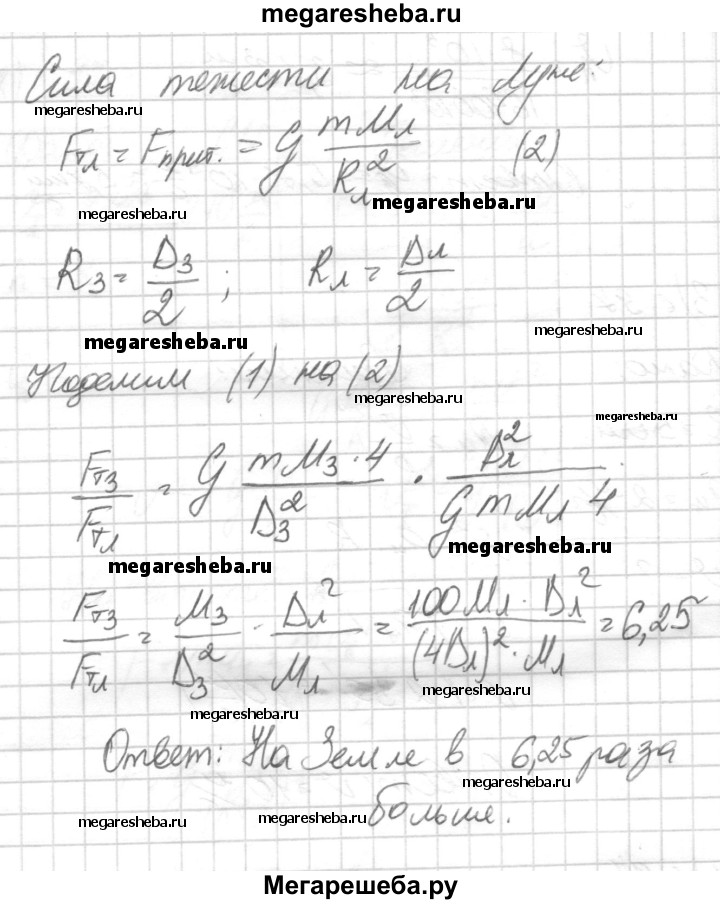 megaresheba.ru
Сила тяжести на Луне:
megaresheba.ru
megaresheba.ru
Fтл = Fприт. = G mMл / Rл² (2)
megaresheba.ru
megaresheba.ru
Rз = Dз / 2 ; Rл = Dл / 2
megaresheba.ru
megaresheba.ru
Поделим (1) на (2)
megaresheba.ru
megaresheba.ru
Fтз / Fтл = G mMз · 4 / Dз² · Dл² / G mMл 4
megaresheba.ru
megaresheba.ru
Fтз / Fтл = Mз / Dз² · Dл² / Mл = 100Mл · Dл² / (4Dл)² · Mл = 6,25
megaresheba.ru
megaresheba.ru
Ответ: На Земле в 6,25 раза
megaresheba.ru
больше.
megaresheba.ru
megaresheba.ru
megaresheba.ru
Мегарешеба.ру